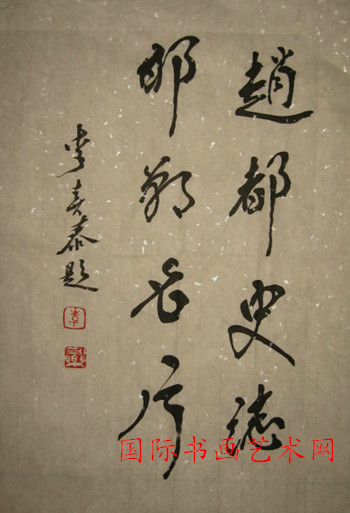 趙都史誌
邯鄲名片
李春泰題
国际书画艺术网